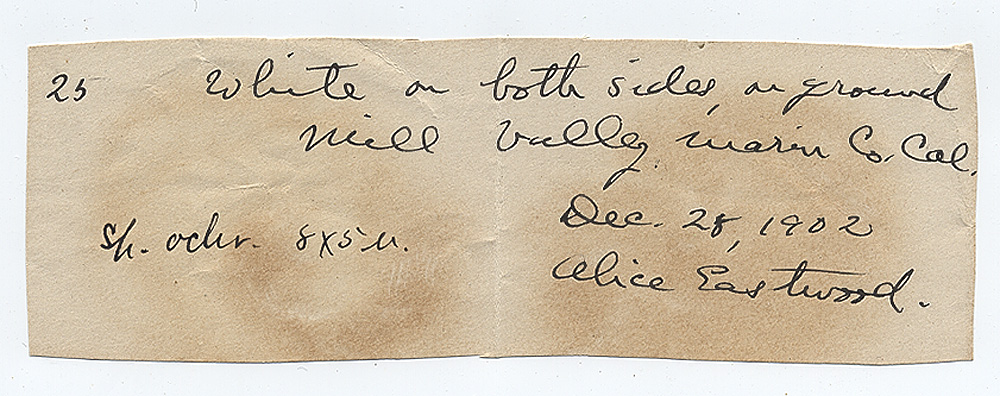 25 White on both sides, on ground
Mill Valley, Marin Co. Cal.
Dec. 28, 1902
sp. ochr. 8x5 u.
Alice Eastwood.